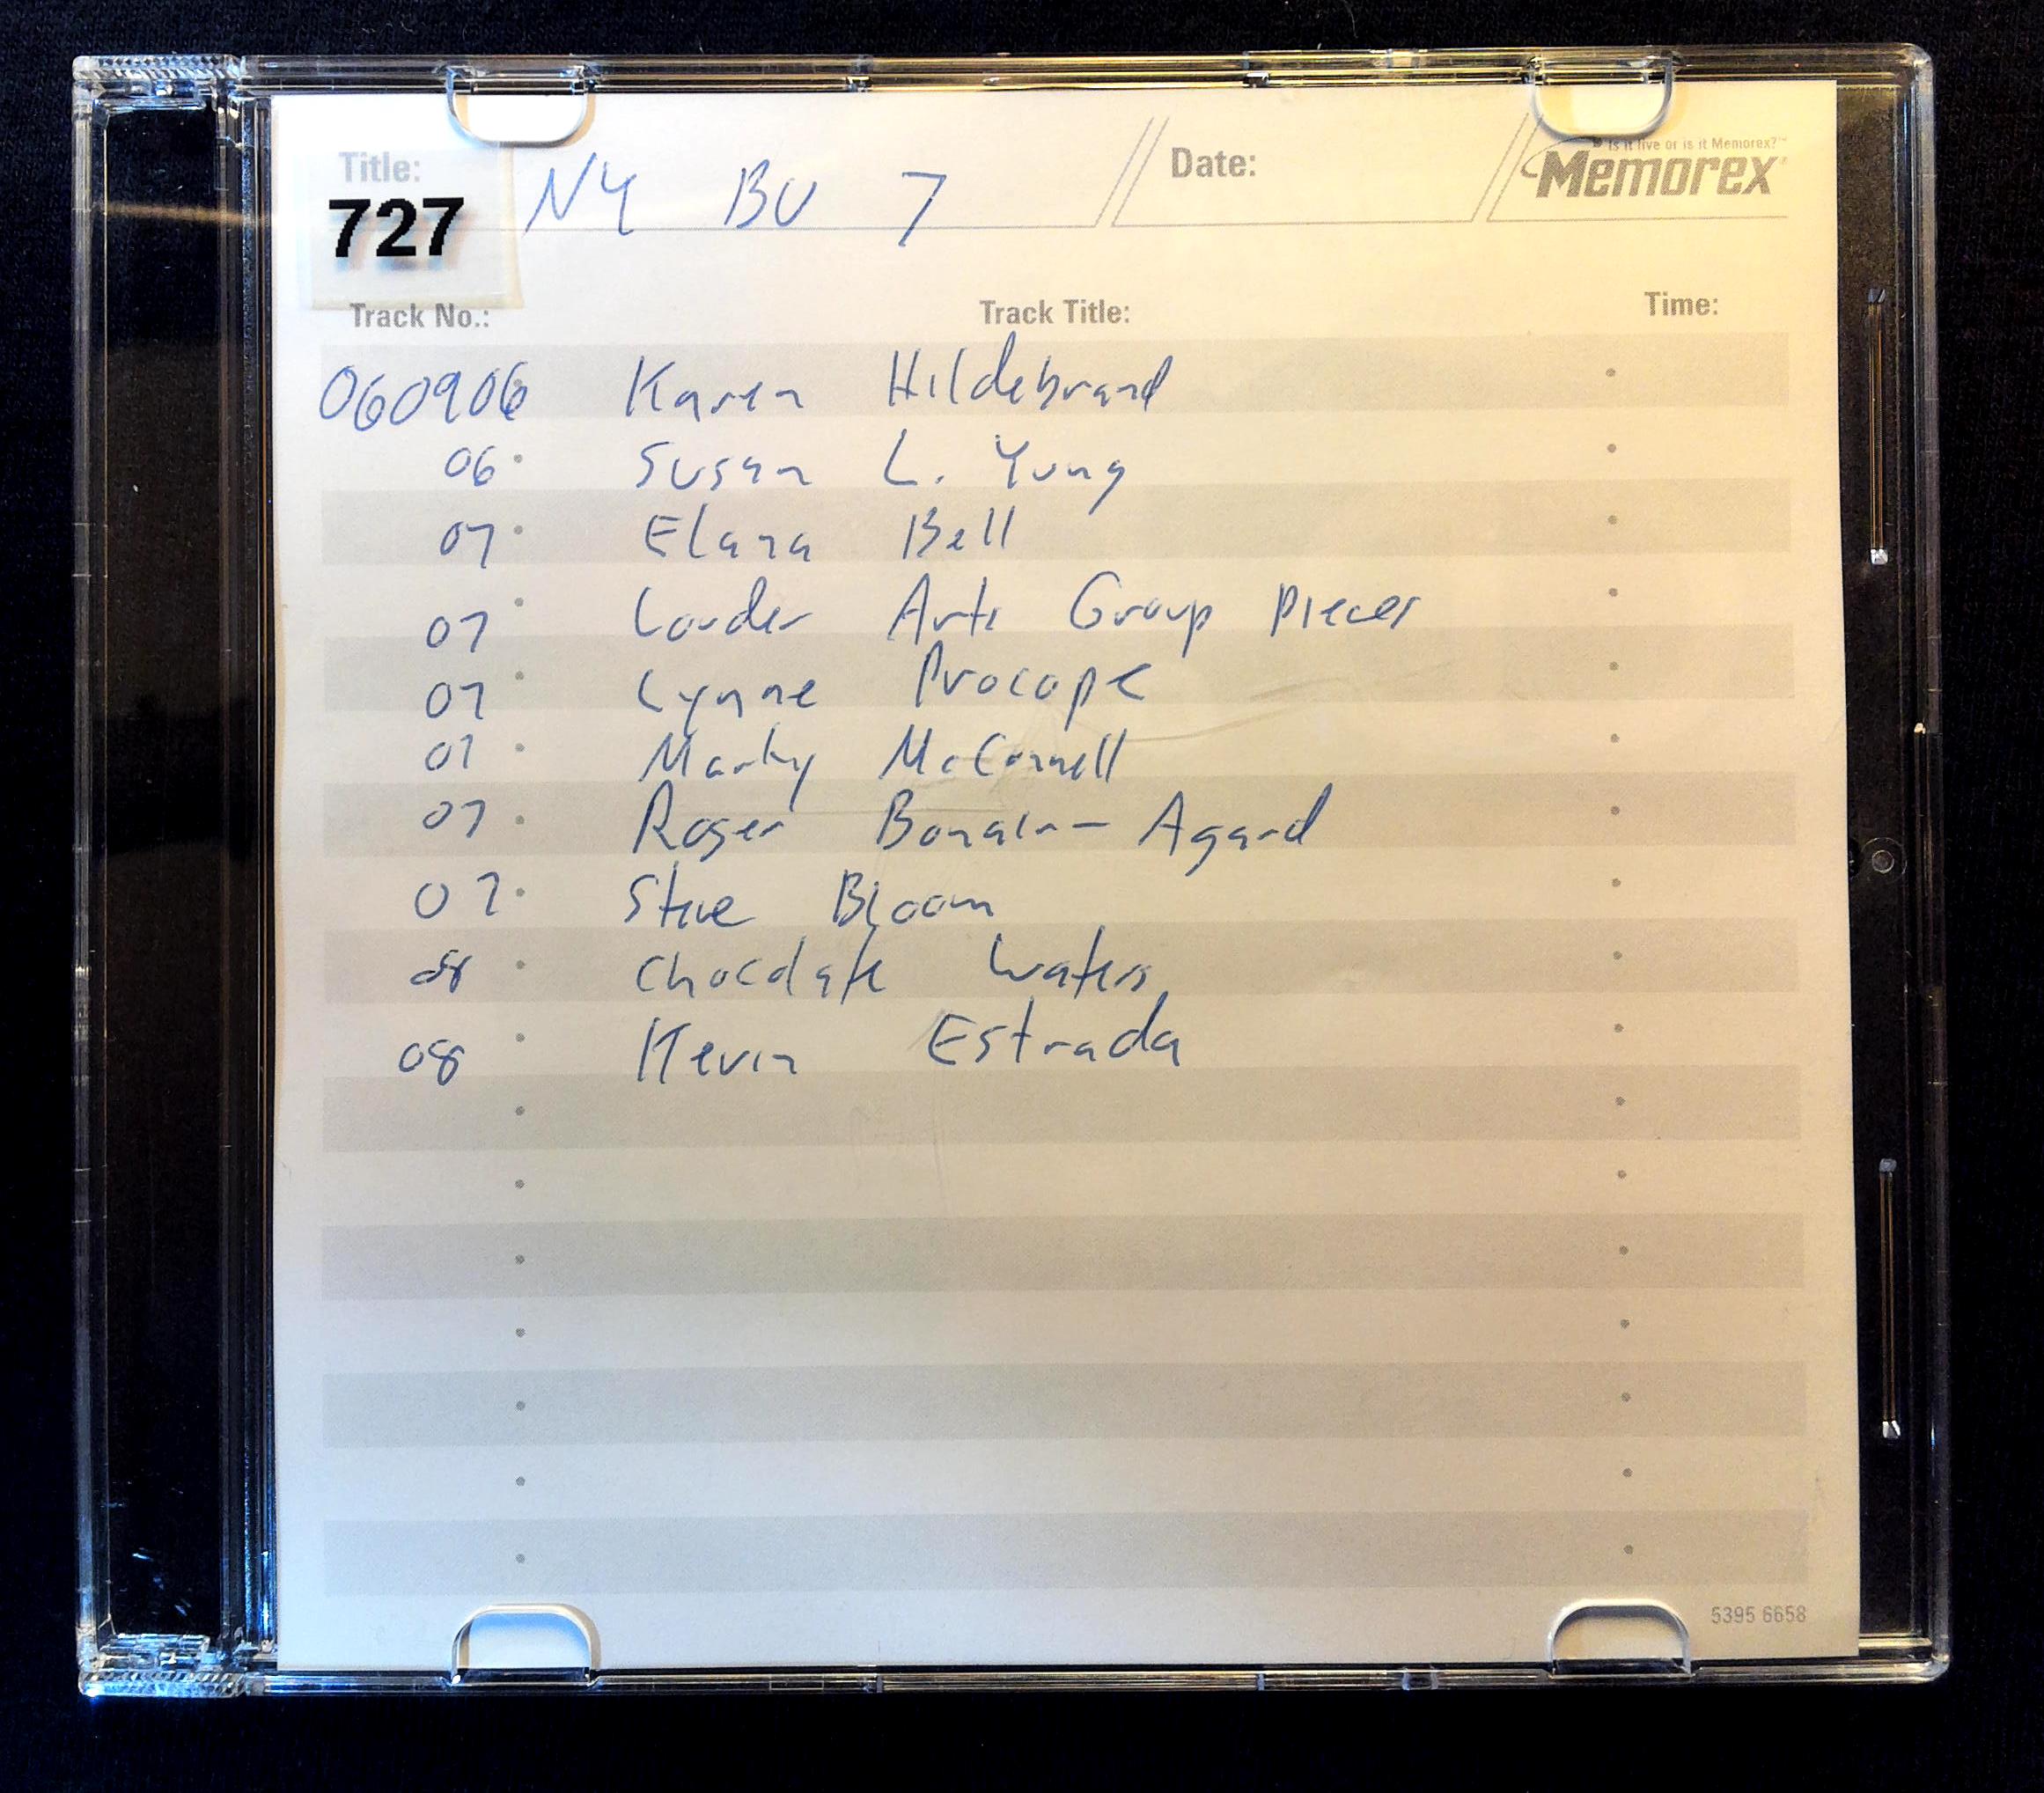 Title:
727
NY BU 7
Date:
Is it live or is it Memorex?™
Memorex®
Track No.: Track Title: Time:
060906 Karen Hildebrand
06 Susan L. Yung
07 Elana Bell
07 Louder Arts Group pieces
07 Lynne Procope
07 Marty McConnell
07 Roger Bonair-Agard
07 Steve Bloom
08 Chocolate Waters
08 Kevin Estrada
5395 6658